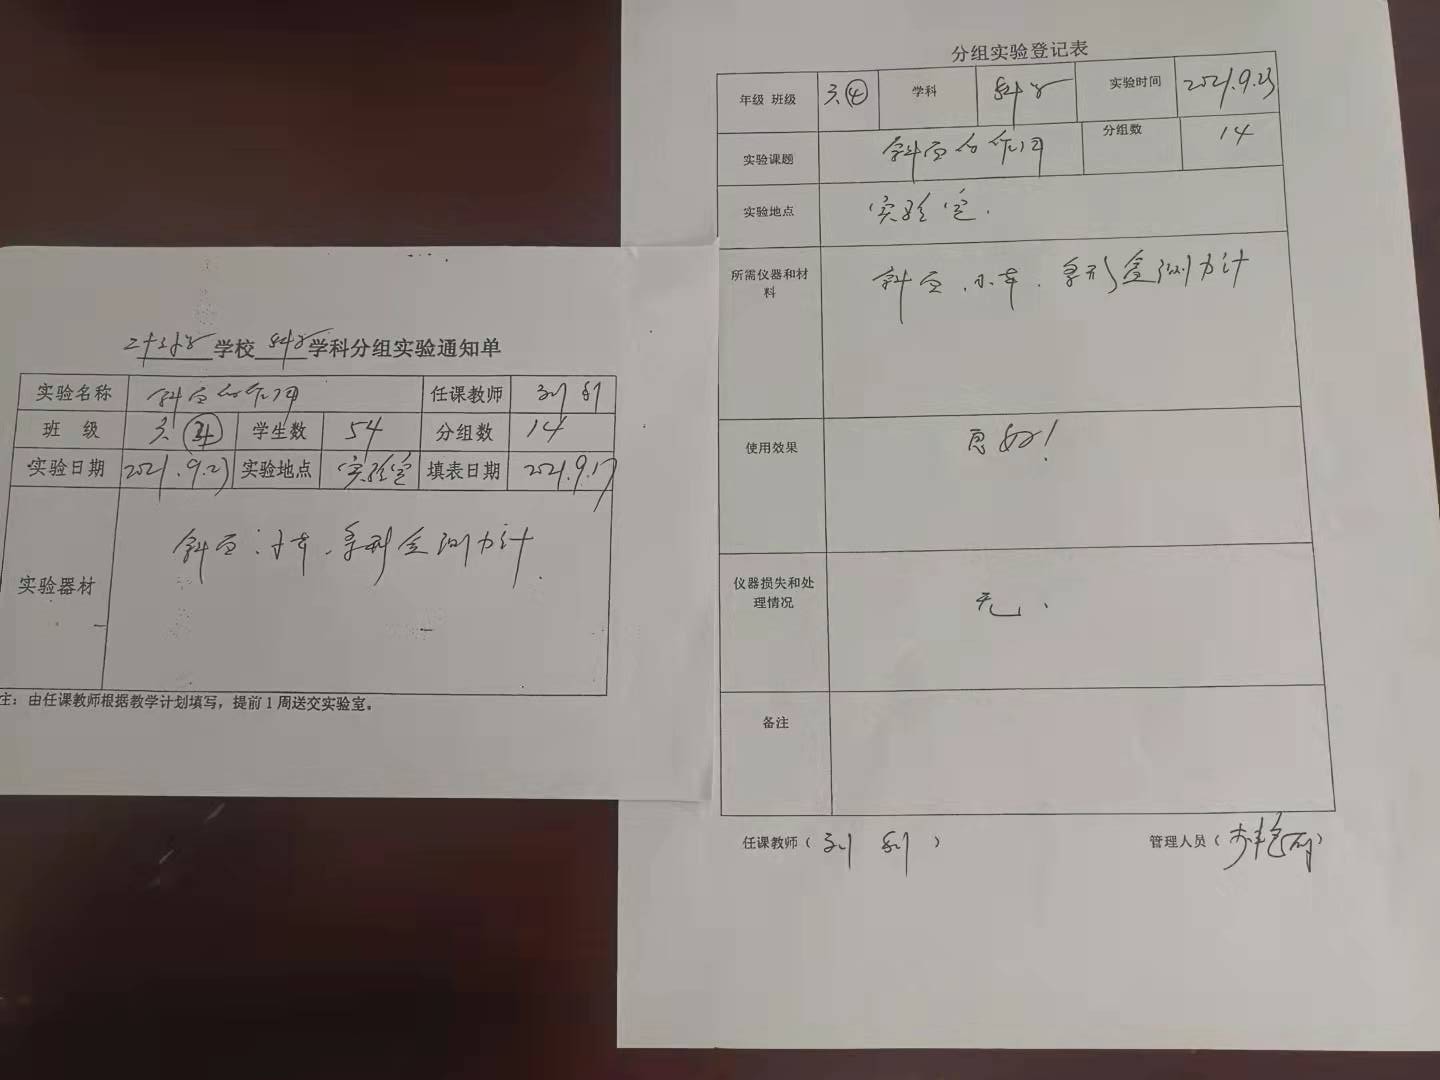 学校 科学 学科分组实验通知单
实验名称 斜面的作用 任课教师 刘利
班 级 六④ 学生数 54 分组数 14
实验日期 2021.9.23 实验地点 实验室 填表日期 2021.9.17
实验器材 斜面、小车、条形盒测力计
注：由任课教师根据教学计划填写，提前1周送交实验室。
分组实验登记表
年级 班级 六④ 学科 科学 实验时间 2021.9.23
实验课题 斜面的作用 分组数 14
实验地点 实验室.
所需仪器和材料 斜面、小车、条形盒测力计
使用效果 良好！
仪器损失和处理情况 无、
备注
任课教师（刘利）
管理人员（李艳）